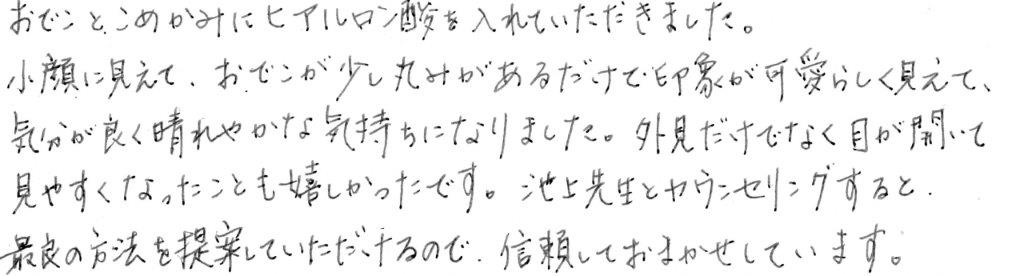 おでことこめかみにヒアルロン酸を入れていただきました。
小顔に見えて、おでこが少し丸みがあるだけで印象が可愛らしく見えて、
気分が良く晴れやかな気持ちになりました。外見だけでなく目が開いて
見やすくなったことも嬉しかったです。池上先生とカウンセリングすると、
最良の方法を提案していただけるので、信頼しておまかせしています。